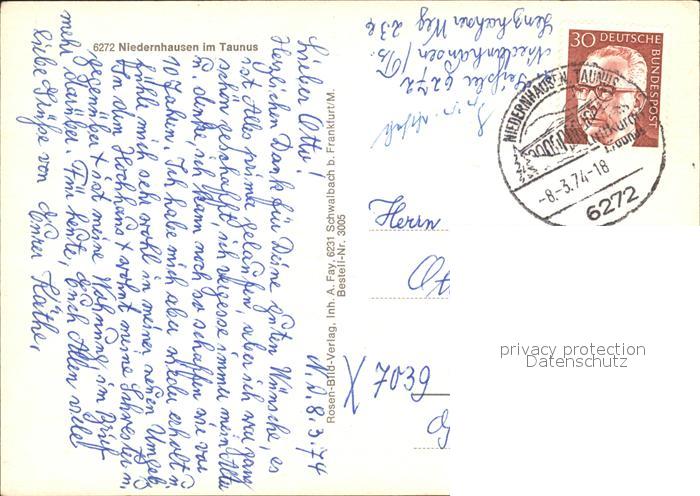 6272 Niedernhausen im Taunus
N.d. 8.3.74
Lieber Otto!
Herzlichen Dank für Deine guten Wünsche, es
ist Alles prima gelaufen, aber ich war ganz
schön geschafft, ich vergesse immer mein Alter
u. denke, ich kann noch so schaffen wie vor
10 Jahren. Ich habe mich aber wieder erholt u.
fühle mich sehr wohl in meiner neuen Umgeb.
In dem Hochhaus x wohnt meine Schwester u.
gegenüber x ist meine Wohnung, im Brief
mehr darüber. Für heute, Euch Allen viele
liebe Grüße von Eurer Käthe.
Rosen-Bild-Verlag, Inh. A. Fay, 6231 Schwalbach b. Frankfurt/M.
Bestell-Nr. 3005
6272
Niedernhausen/Ts.
Lenzhahner Weg 23 c
30 DEUTSCHE
BUNDESPOST
NIEDERNHAUSEN, TAUNUS
-8.-3.74-18
6272
Herrn
X 7039
privacy protection
Datenschutz